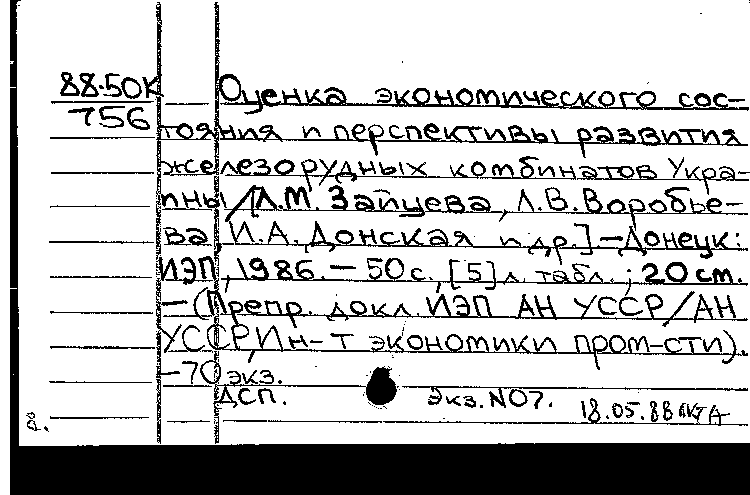 88-50К Оценка экономического сос-
756 тояния и перспективы развития
железорудных комбинатов Укра-
ины /[Л.М. Зайцева, Л.В. Воробье-
ва, И.А. Донская и др.] — Донецк:
ИЭП, 1986. — 50 с., [5] л. табл.; 20 см.
— (Препр. докл. ИЭП АН УССР/АН
УССР, Ин-т экономики пром-сти).
— 70 экз.
ДСП. Экз. №07. 18.05.88